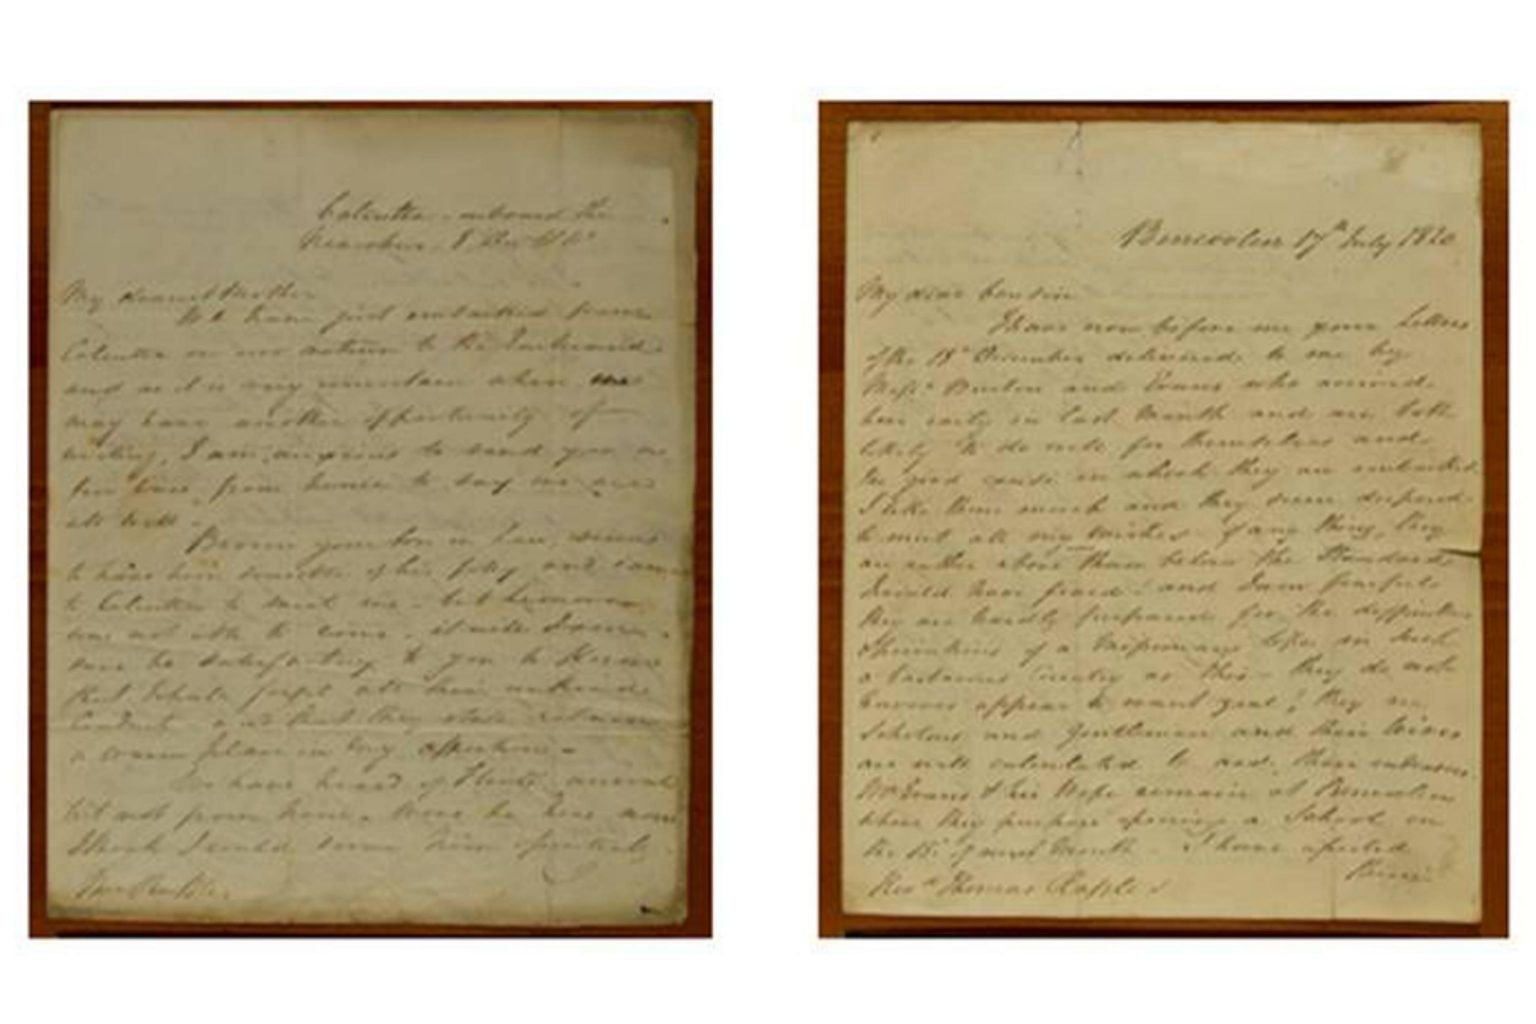 Calcutta - onboard the
Nearchus - 8 Dec
My dearest Mother
We have just embarked from
Calcutta on our return to the Eastward
and as it is very uncertain when we
may have another opportunity of
writing, I am anxious to send you a
few lines from hence to say we are
all well -
Brown your Son in Law, seems
to have been sensible of his folly and
to Calcutta to meet me - but
was not able to come - it will I am
sure be satisfactory to you to know
that I shall forget all their unkind
Conduct and that they shall
a warm place in my affections -
We have heard of arrival
but not from him. Were he here now
I think I could serve him
Mrs Raffles.
Bencoolen 17th July 1820
My dear Cousin
I have now before me your Letters
of the 18th December delivered to me by
Messrs Burton and Evans who arrived
here early in last Month and are both
likely to do well for themselves and
the good cause in which they are embarked.
I like them much and they seem disposed
to meet all my wishes - if any thing, they
are rather above than below the Standard
I could have fixed: and I am fearful
they are hardly prepared for the difficulties
& privations of a Missionary life in such
a barbarous Country as this - they do not
however appear to want zeal; they are
Scholars and Gentlemen and their Wives
are well calculated to aid their endeavours.
Mr Evans & his Wife remain at Bencoolen
where they purpose opening a School on
the 1st of next Month - I have
Revd Thomas Raffles